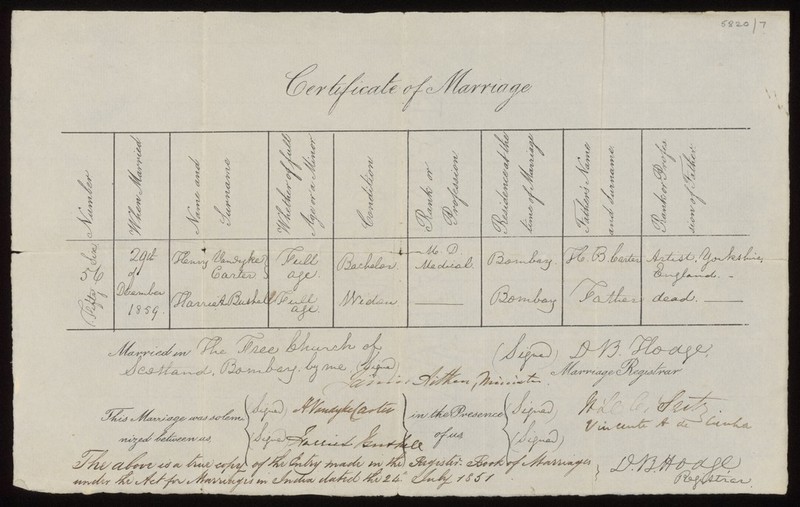 5820/7
Certificate of Marriage
Number
When Married
Name and Surname
Whether of full Age or a Minor
Condition
Rank or Profession
Residence at the time of Marriage
Father's Name and Surname
Rank or Profession of Father
56 Fifty Six
29th of December 1859.
Henry Vandyke Carter
Full age.
Bachelor
M.D. Medical
Bombay.
H. B. Carter
Artist, Yorkshire, England.
Harriet Bushell
Full age.
Widow
Bombay
Father dead.
Married in The Free Church of
Scotland, Bombay, by me, (Signed)
Aitken, Minister.
(Signed) D. B. Hodge,
Marriage Registrar
This Marriage was solemnized between us
(Signed) H Vandyke Carter
(Signed)
in the Presence of us
(Signed)
(Signed)
The above is a true copy of the Entry made in the Register Book of Marriages
under the Act for Marriages in India dated the 24 July 1851
D. B. Hodge
Registrar.